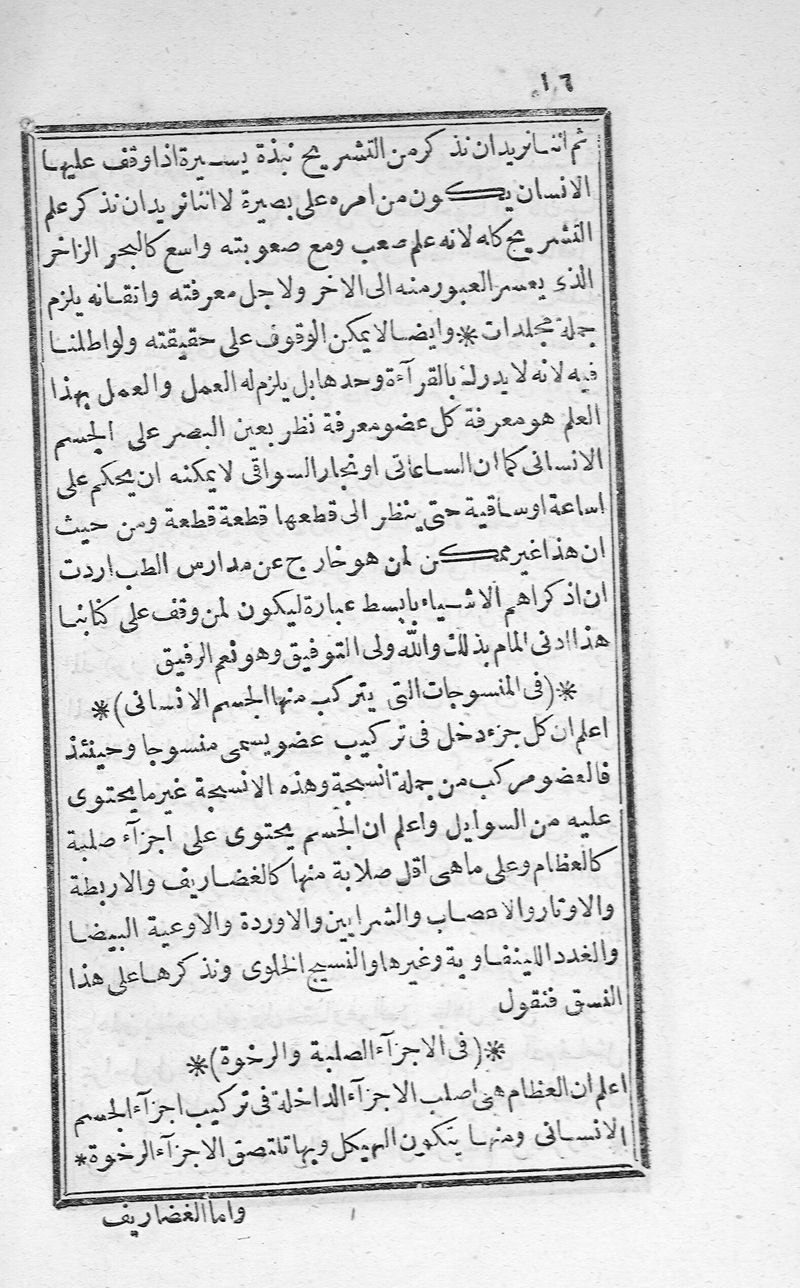 ١٦
ثم اننا نريد ان نذكر من التشريح نبذة يسيرة اذا وقف عليها
الانسان يكون من امره على بصيرة لا اننا نريد ان نذكر علم
التشريح كله لانه علم صعب ومع صعوبته واسع كالبحر الزاخر
الذى يعسر العبور منه الى الاخر ولاجل معرفته واتقانه يلزم
جملة مجلدات * وايضا لا يمكن الوقوف على حقيقته ولو اطلنا
فيه لانه لا يدرك بالقرآءة وحدها بل يلزم له العمل والعمل بهذا
العلم هو معرفة كل عضو معرفة نظر بعين البصر على الجسم
الانسانى كما ان الساعاتى او نجار السواقى لا يمكنه ان يحكم على
ساعة او ساقية حتى ينظر الى قطعها قطعة قطعة ومن حيث
ان هذا غير ممكن لمن هو خارج عن مدارس الطب اردت
ان اذكر اهم الاشياء بابسط عبارة ليكون لمن وقف على كتابنا
هذا ادنى المام بذلك والله ولى التوفيق وهو نعم الرفيق
*(فى المنسوجات التى يتركب منها الجسم الانسانى)*
اعلم ان كل جزء دخل فى تركيب عضو يسمى منسوجا وحينئذ
فالعضو مركب من جملة انسجة وهذه الانسجة غير ما يحتوى
عليه من السوايل واعلم ان الجسم يحتوى على اجزآء صلبة
كالعظام وعلى ما هى اقل صلابة منها كالغضاريف والاربطة
والاوتار والاعصاب والشرايين والاوردة والاوعية البيضا
والغدد اللينفاوية وغيرها والنسيج الخلوى ونذكرها على هذا
النسق فنقول
*(فى الاجزآء الصلبة والرخوة)*
اعلم ان العظام هى اصلب الاجزآء الداخلة فى تركيب اجزآء الجسم
الانسانى ومنها يتكون الهيكل وبها تلتصق الاجزآء الرخوة *
واما الغضاريف